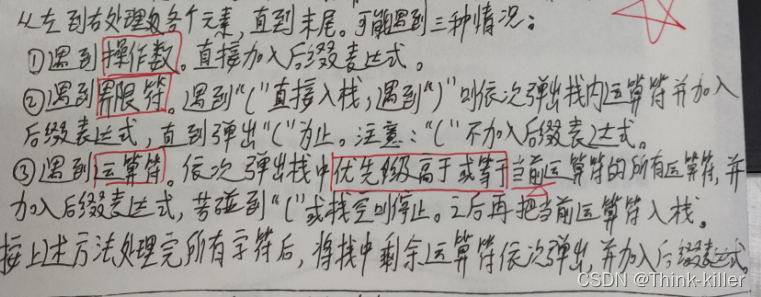 从左到右处理各个元素，直到末尾。可能遇到三种情况：
①遇到操作数。直接加入后缀表达式。
②遇到界限符。遇到“(”直接入栈，遇到“)”则依次弹出栈内运算符并加入
后缀表达式，直到弹出“(”为止。注意：“(”不加入后缀表达式。
③遇到运算符。依次弹出栈中优先级高于或等于当前运算符的所有运算符，并
加入后缀表达式，若碰到“(”或栈空则停止。之后再把当前运算符入栈。
按上述方法处理完所有字符后，将栈中剩余运算符依次弹出，并加入后缀表达式。
CSDN @Think-killer